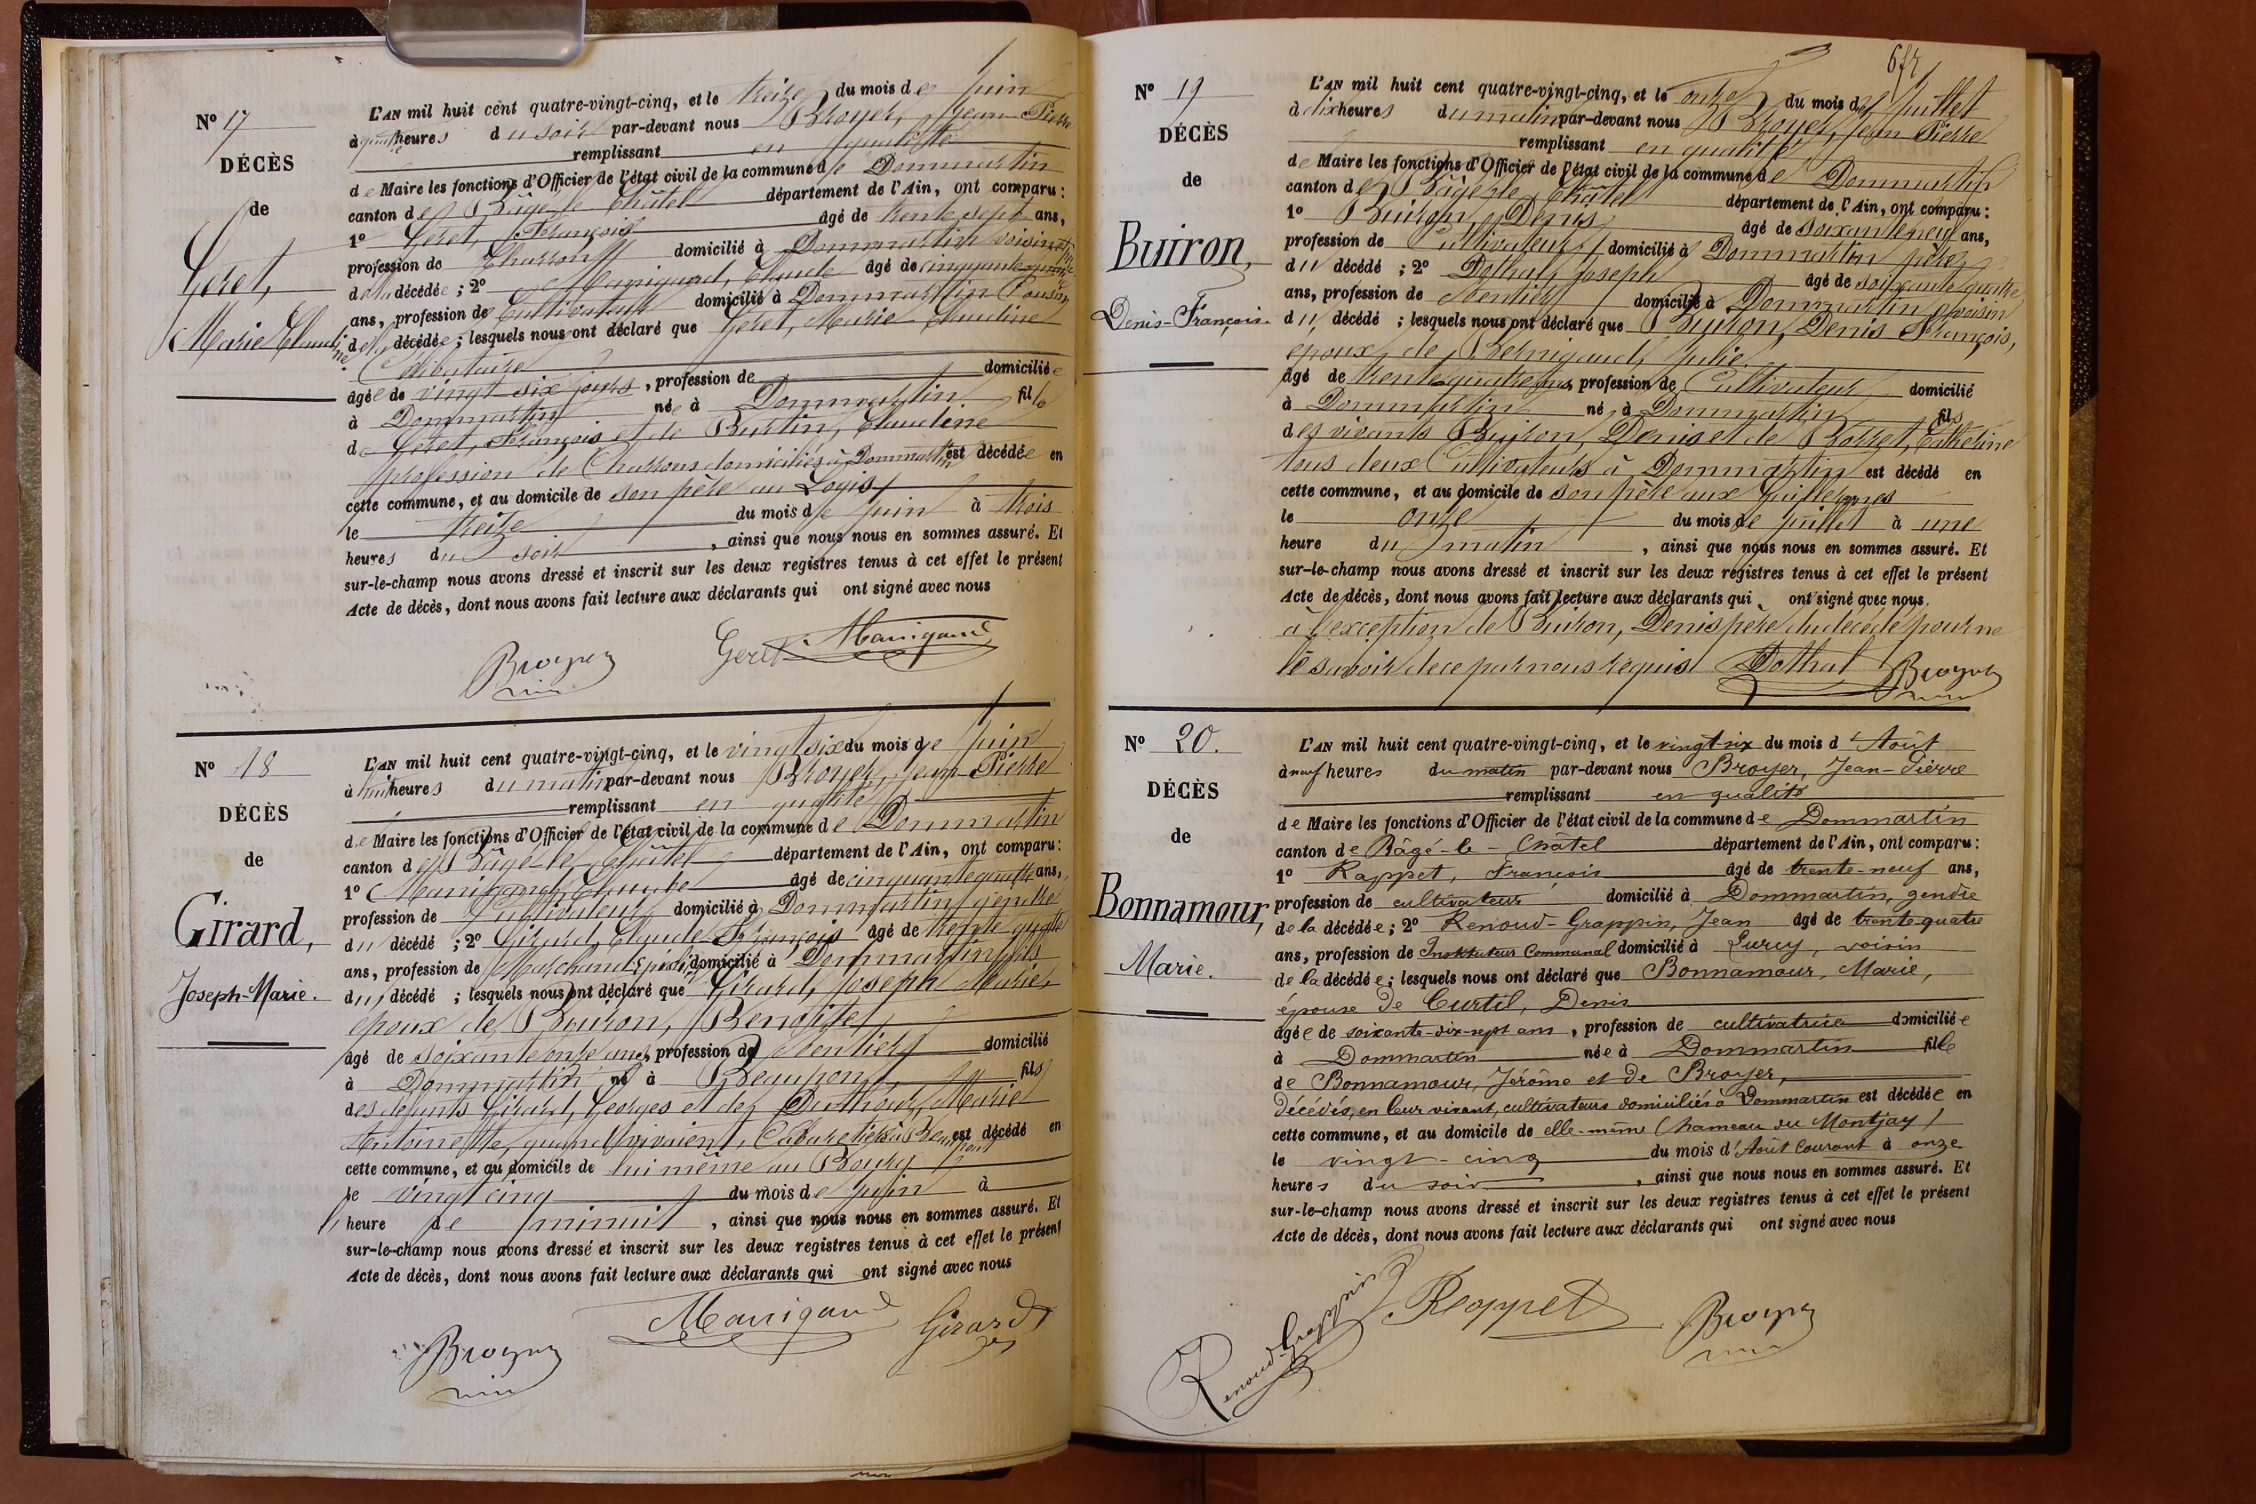 N° 17
DÉCÈS
de
Geret,
Marie Claudine.
L'AN mil huit cent quatre-vingt-cinq, et le treize du mois de Juin
à quatre heures du soir par-devant nous Broyer, Jean-Pierre
remplissant en qualité
de Maire les fonctions d'Officier de l'état civil de la commune de Dommartin
canton de Bâgé-le-Châtel département de l'Ain, ont comparu:
1° Geret, François âgé de trente sept ans,
profession de Charron domicilié à Dommartin voisin
de la décédée; 2° Manigand, Claude âgé de cinquante quatre
ans, profession de Cultivateur domicilié à Dommartin Cousin
de la décédée; lesquels nous ont déclaré que Geret, Marie Claudine
Célibataire
âgée de vingt six jours, profession de domiciliée
à Dommartin née à Dommartin fille
de Geret, François et de Burtin, Claudine
profession de Charrons domiciliés à Dommartin est décédée en
cette commune, et au domicile de son père au Logis
le treize du mois de juin à trois
heures du soir, ainsi que nous nous en sommes assuré. Et
sur-le-champ nous avons dressé et inscrit sur les deux registres tenus à cet effet le présent
Acte de décès, dont nous avons fait lecture aux déclarants qui ont signé avec nous
Broyer Geret Manigand
N° 18
DÉCÈS
de
Girard,
Joseph-Marie.
L'AN mil huit cent quatre-vingt-cinq, et le vingt six du mois de Juin
à huit heures du matin par-devant nous Broyer, Jean-Pierre
remplissant en qualité
de Maire les fonctions d'Officier de l'état civil de la commune de Dommartin
canton de Bâgé-le-Châtel département de l'Ain, ont comparu:
1° Manigand, Claude âgé de cinquante quatre ans,
profession de Cultivateur domicilié à Dommartin gendre
du décédé; 2° Girard, Claude-François âgé de trente quatre
ans, profession de Marchand Epicier domicilié à Dommartin fils
du décédé; lesquels nous ont déclaré que Girard, Joseph Marie,
époux de Bouiron, Benoite,
âgé de soixante onze ans, profession de Rentier domicilié
à Dommartin né à Beaupont fils
des défunts Girard, Georges et de Marie
Antoinette, quand vivaient, Cabaretiers à Beaupont est décédé en
cette commune, et au domicile de lui même au Bourg
le vingt cinq du mois de juin à
heure de minuit, ainsi que nous nous en sommes assuré. Et
sur-le-champ nous avons dressé et inscrit sur les deux registres tenus à cet effet le présent
Acte de décès, dont nous avons fait lecture aux déclarants qui ont signé avec nous
Broyer Manigand Girard
N° 19
DÉCÈS
de
Buiron,
Denis-François.
L'AN mil huit cent quatre-vingt-cinq, et le onze du mois de Juillet
à dix heures du matin par-devant nous Broyer, Jean Pierre
remplissant en qualité
de Maire les fonctions d'Officier de l'état civil de la commune de Dommartin
canton de Bâgé-le-Châtel département de l'Ain, ont comparu:
1° Buiron, Denis âgé de soixante neuf ans,
profession de Cultivateur domicilié à Dommartin père
du décédé; 2° Dothal, Joseph âgé de soixante quatre
ans, profession de Rentier domicilié à Dommartin voisin
du décédé; lesquels nous ont déclaré que Buiron, Denis François,
époux de Bernigaud, Julie
âgé de trente quatre ans, profession de Cultivateur domicilié
à Dommartin né à Dommartin fils
des vivants Buiron, Denis et de Borret, Catherine
tous deux Cultivateurs à Dommartin est décédé en
cette commune, et au domicile de son père aux
le onze du mois de juillet à une
heure du matin, ainsi que nous nous en sommes assuré. Et
sur-le-champ nous avons dressé et inscrit sur les deux registres tenus à cet effet le présent
Acte de décès, dont nous avons fait lecture aux déclarants qui ont signé avec nous.
à l'exception de Buiron, Denis père du décédé pour ne
le savoir de ce par nous requis Dothal Broyer
N° 20.
DÉCÈS
de
Bonnamour,
Marie.
L'AN mil huit cent quatre-vingt-cinq, et le vingt-six du mois d'Août
à neuf heures du matin par-devant nous Broyer, Jean-Pierre
remplissant en qualité
de Maire les fonctions d'Officier de l'état civil de la commune de Dommartin
canton de Bâgé-le-Châtel département de l'Ain, ont comparu:
1° Rappet, François âgé de trente-neuf ans,
profession de cultivateur domicilié à Dommartin, gendre
de la décédée; 2° Renoud-Grappin, Jean âgé de trente-quatre
ans, profession de Instituteur Communal domicilié à Lurcy, voisin
de la décédée; lesquels nous ont déclaré que Bonnamour, Marie,
épouse de Curtil, Denis
âgée de soixante-dix-sept ans, profession de cultivatrice domiciliée
à Dommartin née à Dommartin fille
de Bonnamour, Jérôme et de Broyer,
décédés, en leur vivant, cultivateurs domiciliés à Dommartin est décédée en
cette commune, et au domicile de elle-même (hameau du Montjay)
le vingt-cinq du mois d'Août courant à onze
heures du soir, ainsi que nous nous en sommes assuré. Et
sur-le-champ nous avons dressé et inscrit sur les deux registres tenus à cet effet le présent
Acte de décès, dont nous avons fait lecture aux déclarants qui ont signé avec nous
Renoud-Grappin J. Rappet Broyer